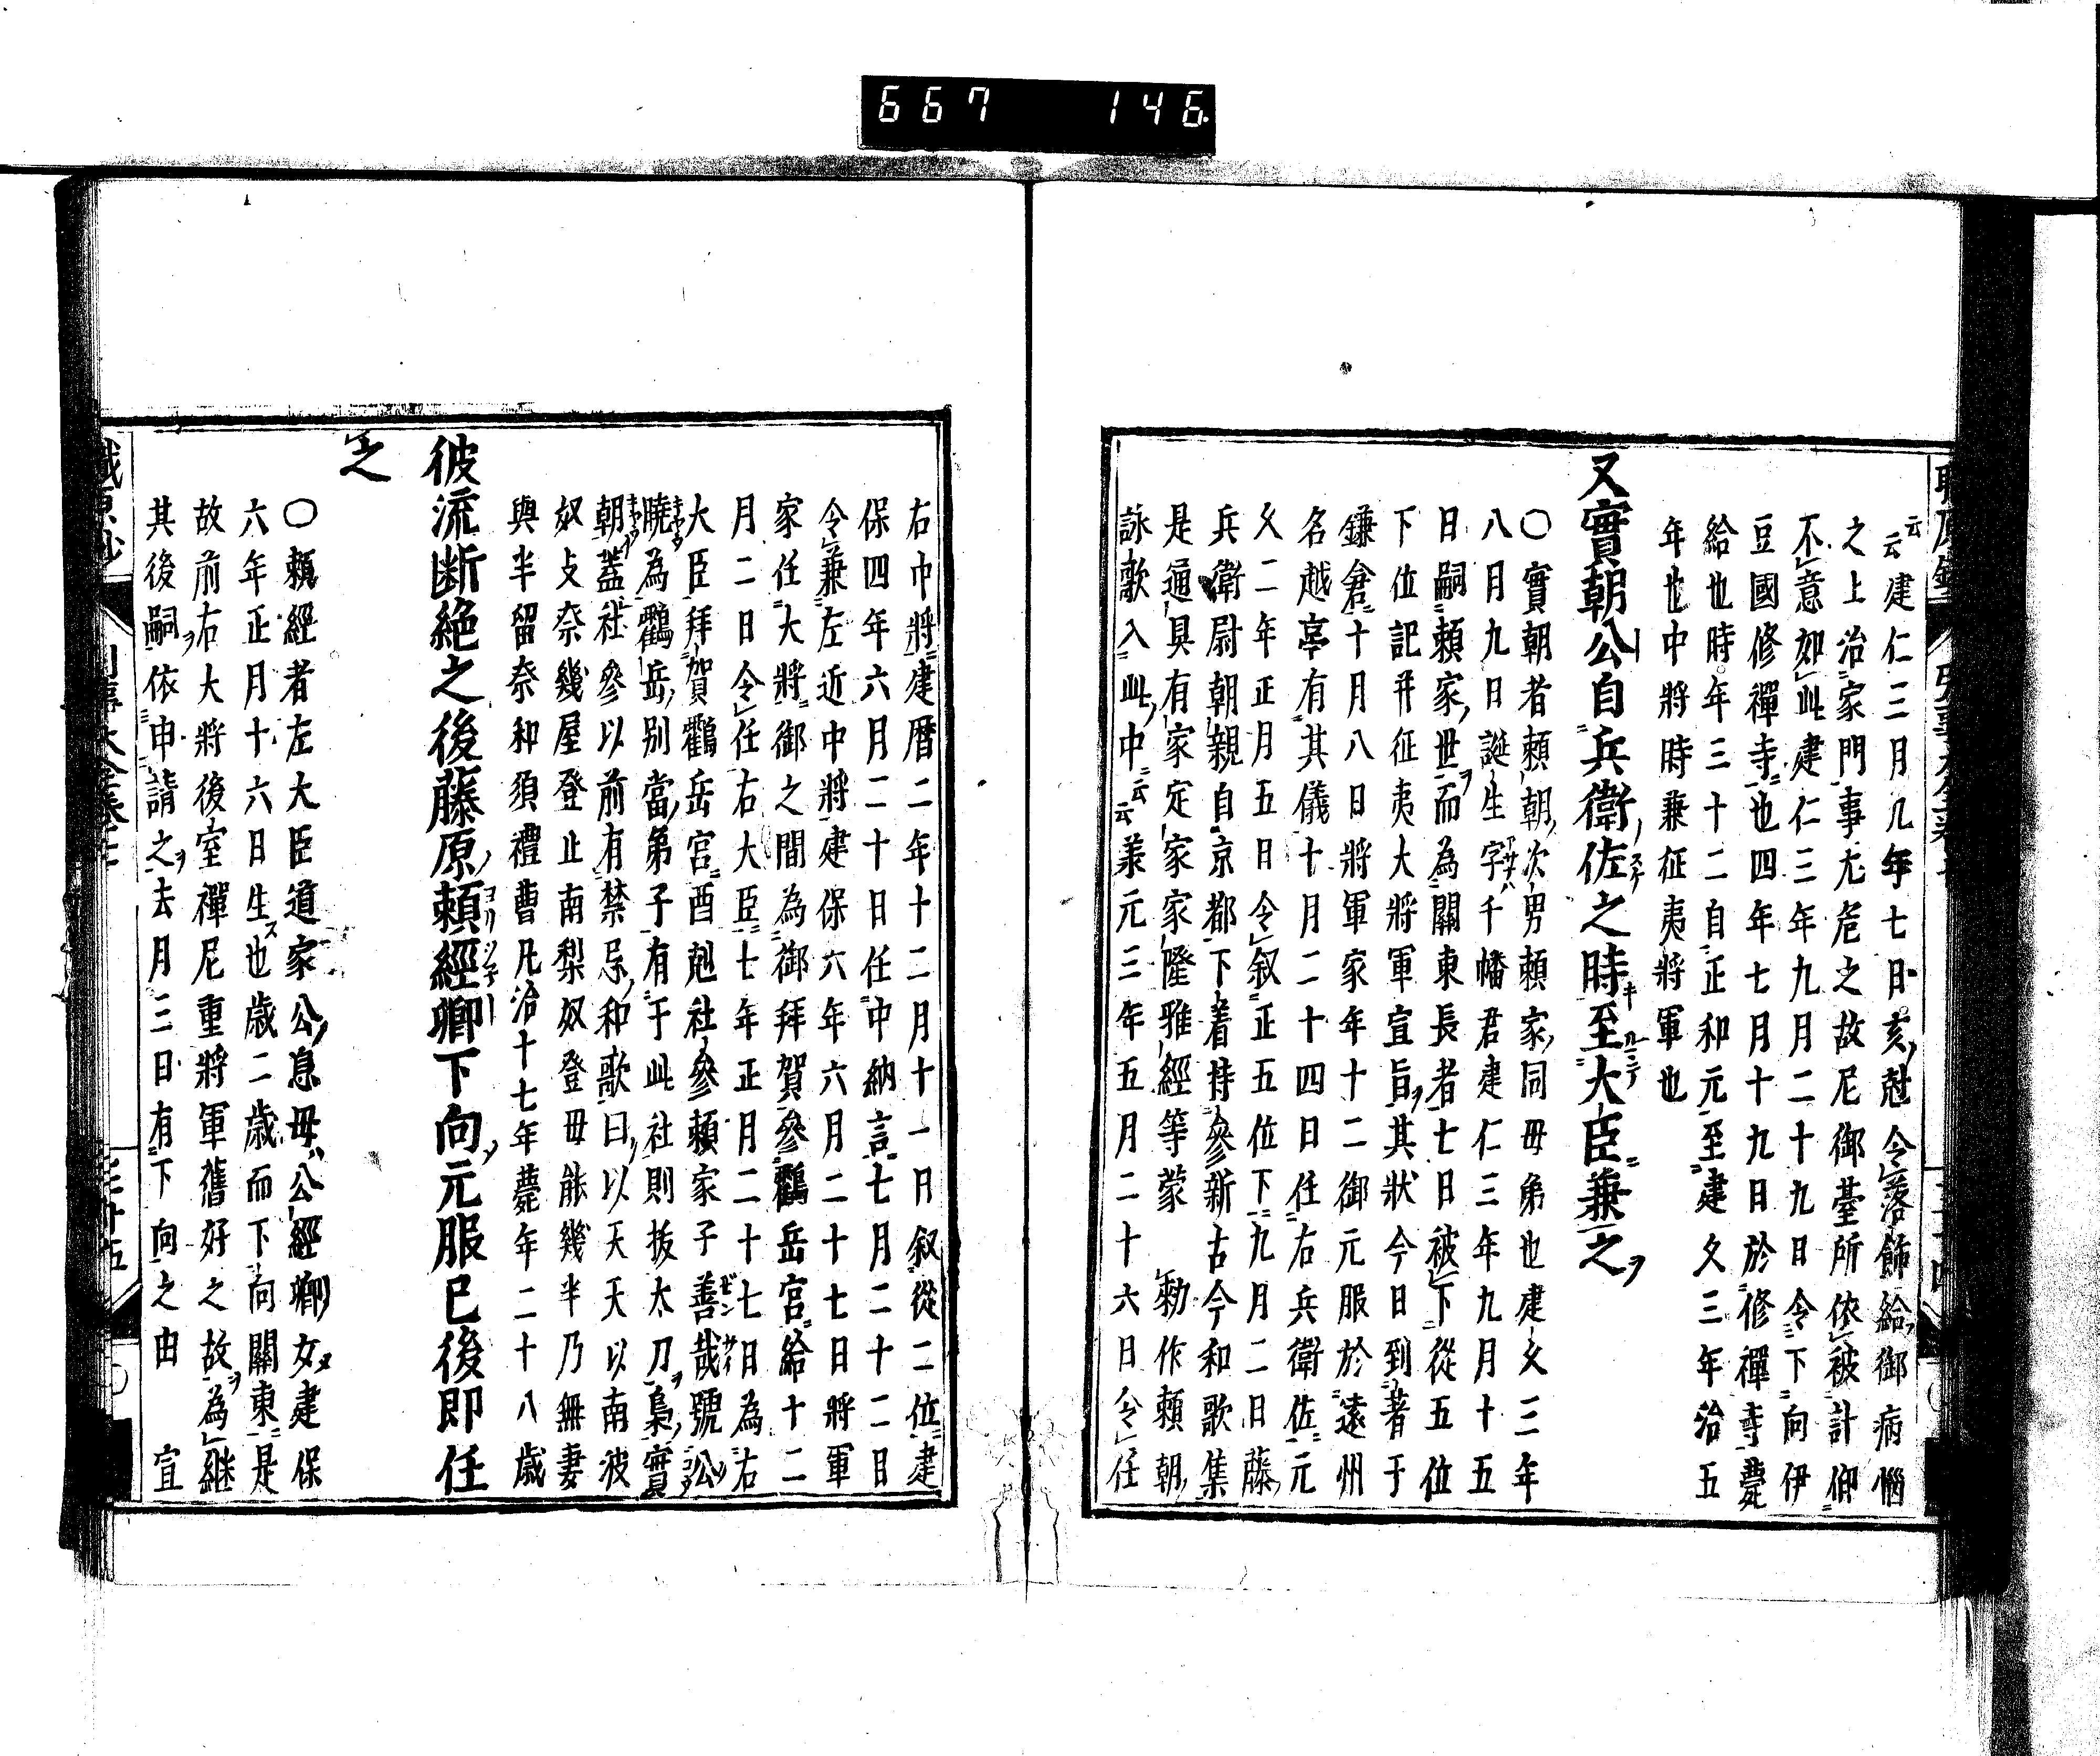 667 146
云云建仁三月几年七日亥尅令落飾給御病惱
之上治家門事尤危之故尼御臺所依被計仰
不意如此建仁三年九月二十九日令下向伊
豆國修禪寺也四年七月十九日於修禪寺薨
給也時年三十二自正和元至建久三年治五
年也中將時兼征夷將軍也
又實朝公自兵衛佐之時至大臣兼之
○實朝者頼朝次男頼家同母弟也建久三年
八月九日誕生字千幡君建仁三年九月十五
日嗣頼家世而為關東長者七日被下從五位
下位記并征夷大將軍宣旨其狀今日到著于
鎌倉十月八日將軍家年十二御元服於遠州
名越亭有其儀十月二十四日任右兵衛佐元
久二年正月五日令叙正五位下九月二日藤
兵衛尉朝親自京都下着持參新古今和歌集
是通具有家定家家隆雅經等蒙 勅作頼朝
詠歌入此中云云羕元三年五月二十六日令任
右中將建暦二年十二月十一日叙從二位建
保四年六月二十日任中納言七月二十二日
令兼左近中將建保六年六月二十七日將軍
家任大將御之間為御拜賀參鶴岳宮給十二
月二日令任右大臣七年正月二十七日為右
大臣拜賀鶴岳宮酉尅社參頼家子善哉號公
曉為鶴岳別當弟子有于此社則拔太刀梟實
朝蓋社參以前有禁忌和歌曰以天天以南波
奴攴奈幾屋登止南梨奴登毋能幾半乃無妻
與半留奈和須禮曹凡治十七年薨年二十八歳
彼流断絶之後藤原頼經卿下向元服已後即任
之
○頼經者左大臣道家公息母公經卿女建保
六年正月十六日生也歳二歳而下向關東是
故前右大將後室禪尼重將軍舊好之故為継
其後嗣依申請之去月三日有下向之由 宣